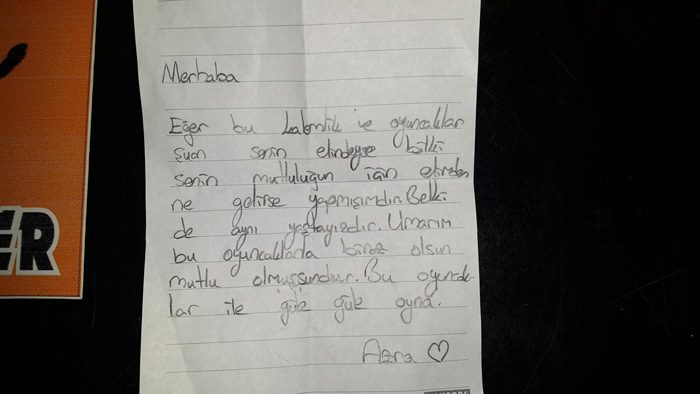 Merhaba
Eğer bu kalemlik ve oyuncaklar
şuan senin elindeyse bilki
senin mutluluğun için elimden
ne gelirse yapmışımdır. Belki
de aynı yaştayızdır. Umarım
bu oyuncaklarla biraz olsun
mutlu olmuşsundur. Bu oyuncak-
lar ile güle güle oyna.
Azra ♡
ER